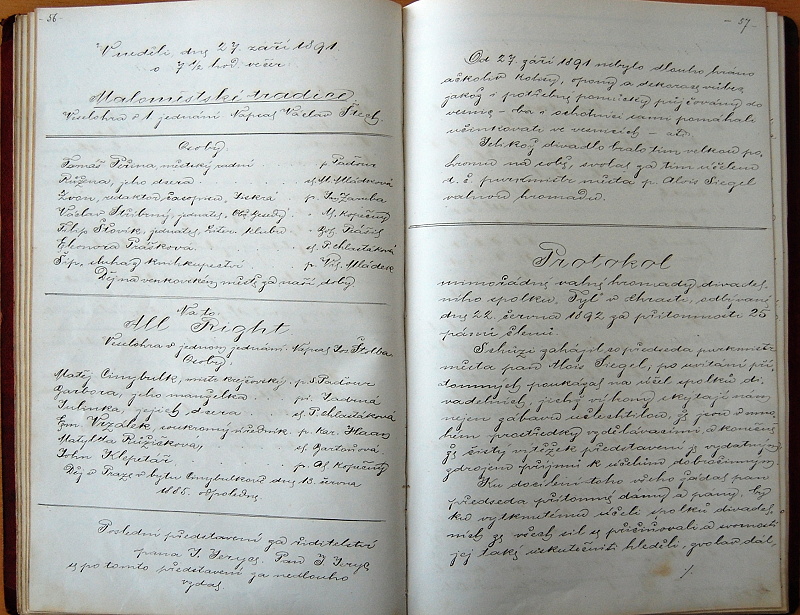 - 56 -
V neděli, dne 27. září 1891.
o 7 1/2 hod. večer
Maloměstské tradice.
Veselohra o 1 jednání. Napsal Václav Štech.
Osoby.
Tomáš Peřina, městský radní p. Paďour
Růžena, jeho dcera sl. M. Mládková
Zvon, redaktor časopisu Jiskra p. Zamba
Václav Stříbrný, jednatel M. Kopečný
Filip Slovík, jednatel Liter. klubu
Eleonora Ptáčková sl. P. Chlastáková
Síp, sluha knihkupectví p. Mládek
Děj na venkovském městě za naší doby
Na to:
All Right
Veselohra o jednom jednání. Napsal Jos. Štolba.
Osoby:
Matěj Cinybulk, mistr krejčovský p. J. Paďour
Barbora, jeho manželka
Julinka, jejich dcera sl. P. Chlastáková
Em. Vrzálek, soukromý úředník p. Kar. Haas
Matylda Růžičková, sl. Bartoňová
John Klepetář p. Kopečný
Děj v Praze v bytu Cinybulkově dne 13. června
1886. odpoledne.
Poslední představení za ředitelství
pana J. Jeryse. Pan J. Jerys
se po tomto představení za nedlouho
vzdal.
- 57 -
Od 27. září 1891 nebylo dlouho hráno
ačkoliv kulisy, opony a dekorace vůbec
jakož i potřebné pomůcky půjčovány do
vesnic – ba i ochotníci sami pomáhali
účinkovati ve vesnicích – atd.
Jelikož divadlo bralo tím velkou po-
hromu na sobě, svolal za tím účelem
t. č. purkmistr města p. Alois Siegel
valnou hromadu.
Protokol
mimořádné valné hromady divadel-
ního spolku "Tyl" v Chrasti, odbývané
dne 22. června 1892 za přítomnosti 25
pánů členů.
Schůzi zahájil co předseda purkmistr
města pan Alois Siegel, po uvítání pří-
tomných poukázal na účel spolků di-
vadelních, jichž výkony skytají nám
nejen zábavu ušlechtilou, že jsou v mno-
hém prostředky vzdělávacími a konečně
že čistý výtěžek představení je vydatným
zdrojem příjmů k účelům dobročinným.
Ku docílení toho všeho žádal pan
předseda přítomné dámy a pány, by
ku vytknutému účeli spolků divadel-
ních ze všech sil se přičiňovali a svornosti
jej také uskutečniti hleděli, zvolal dál,
./.